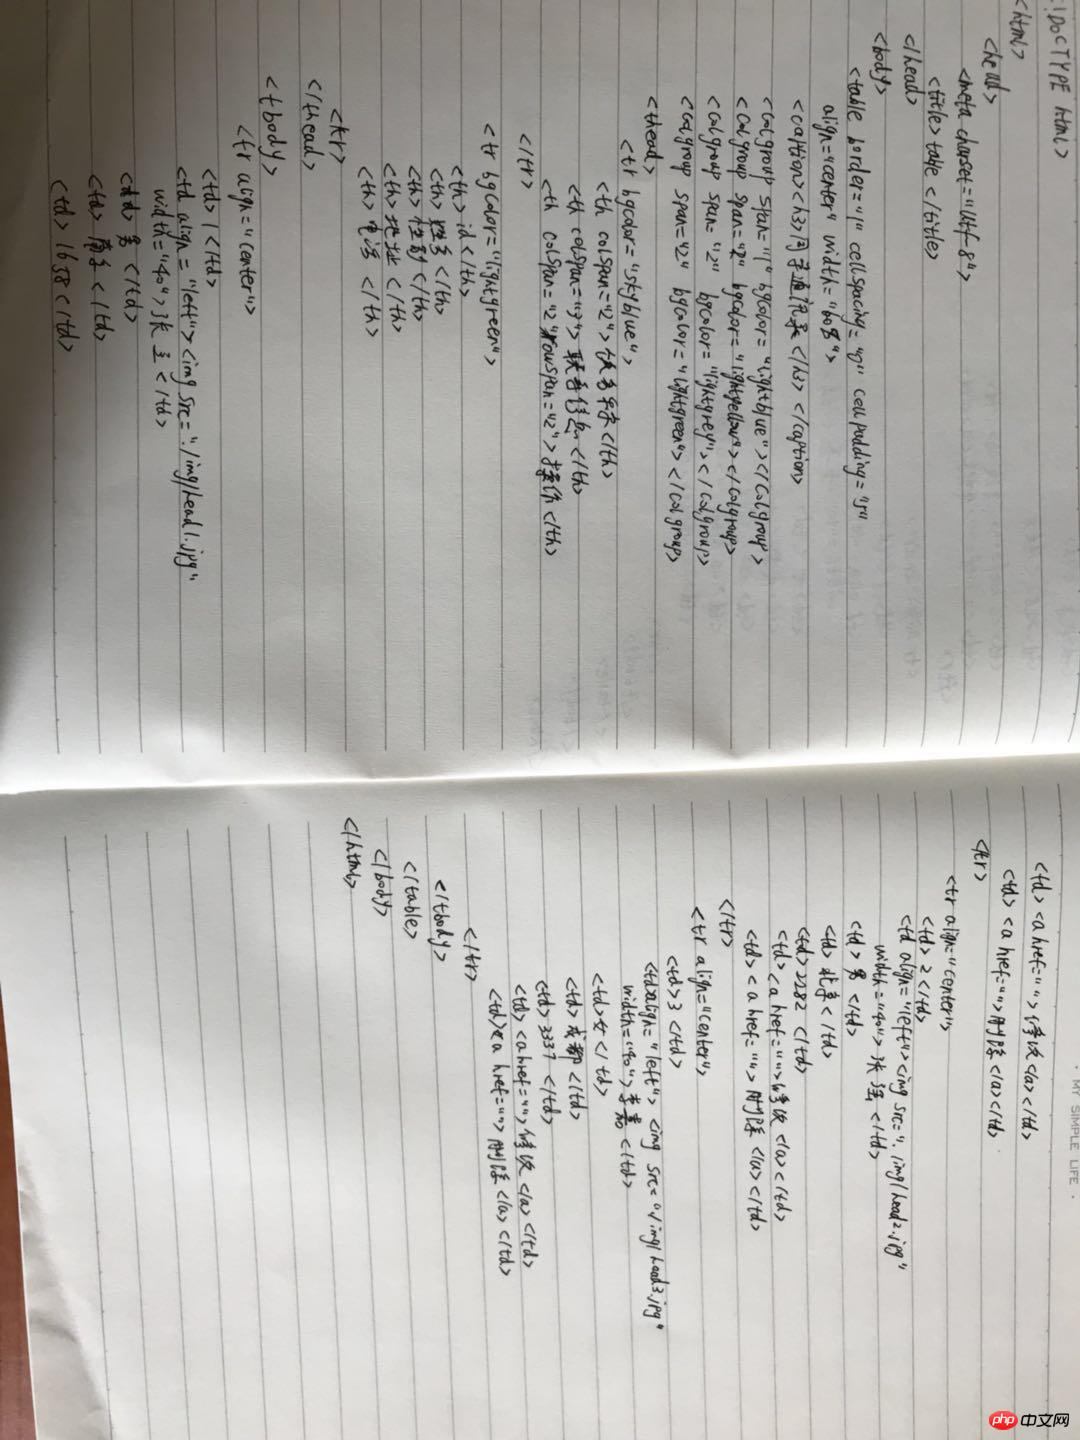 <!DOCTYPE html>
<html>
<head>
<meta charset="Utf-8">
<title>table</title>
</head>
<body>
<table border="1" cellspacing="0" cellpadding="5"
align="center" width="608">
<caption><h3>同学通讯录</h3></caption>
<colgroup span="1" bgcolor="lightblue"></colgroup>
<colgroup span="2" bgcolor="lightyellow"></colgroup>
<colgroup span="2" bgcolor="lightgrey"></colgroup>
<colgroup span="2" bgcolor="lightgreen"></colgroup>
<thead>
<tr bgcolor="skyblue">
<th colspan="2"></th>
<th colspan="3">联系信息</th>
<th colspan="2" rowspan="2">操作</th>
</tr>
<tr bgcolor="lightgreen">
<th>id</th>
<th>姓名</th>
<th>性别</th>
<th>地址</th>
<th>电话</th>
<tr>
</thead>
<tbody>
<tr align="center">
<td>1</td>
<td align="left"><img src="./img/head1.jpg"
width="40">张三</td>
<td>男</td>
<td>南京</td>
<td>1658</td>
<td><a href="">修改</a></td>
<td><a href="">删除</a></td>
<tr>
<tr align="center">
<td>2</td>
<td align="left"><img src="./img/head2.jpg"
width="40">张强</td>
<td>男</td>
<td>北京</td>
<td>2282</td>
<td><a href="">修改</a></td>
<td><a href="">删除</a></td>
</tr>
<tr align="center">
<td>3</td>
<td align="left"><img src="./img/head3.jpg"
width="40">李</td>
<td>女</td>
<td>成都</td>
<td>3337</td>
<td><a href="">修改</a></td>
<td><a href="">删除</a></td>
</tr>
</tbody>
</table>
</body>
</html>
· MY SIMPLE LIFE ·
php 中文网